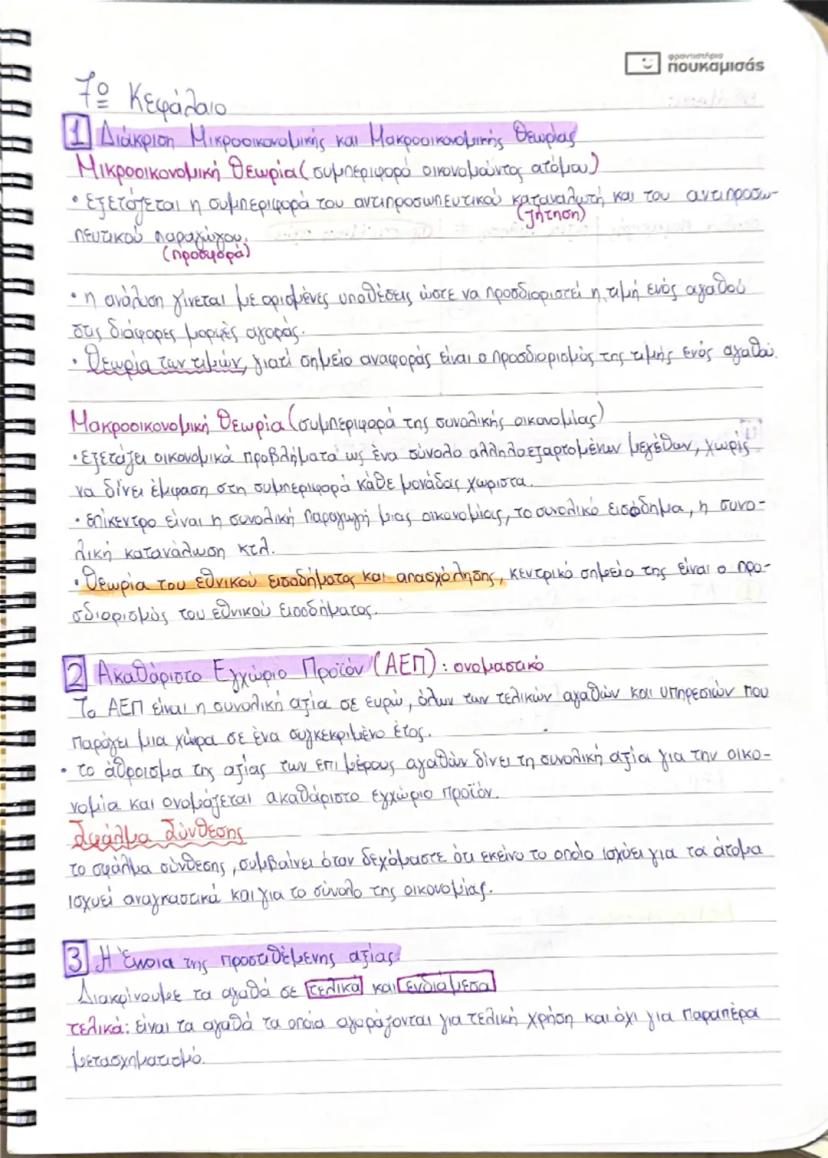 φροντιστήριο
πουκαμισάς
7ο Κεφάλαιο
1 Διάκριση Μικροοικονομικής και Μακροοικονομικής Θεωρίας
Μικροοικονομική Θεωρία (συμπεριφορά οικονομούντος ατόμου)
• εξετάζεται η συμπεριφορά του αντιπροσωπευτικού καταναλωτή και του αντιπροσω-
(ζήτηση)
πευτικού παραγωγού.
(προσφορά)
• η ανάλυση γίνεται με ορισμένες υποθέσεις ώστε να προσδιοριστεί η τιμή ενός αγαθού
στις διάφορες μορφές αγοράς.
• Θεωρία των τιμών, γιατί σημείο αναφοράς είναι ο προσδιορισμός της τιμής ενός αγαθού.
Μακροοικονομική Θεωρία (συμπεριφορά της συνολικής οικονομίας)
• εξετάζει οικονομικά προβλήματα ως ένα σύνολο αλληλοεξαρτομένων μεγεθών, χωρίς
να δίνει έμφαση στη συμπεριφορά κάθε μονάδας χωριστα.
• επίκεντρο είναι η συνολική παραγωγή μιας οικονομίας, το συνολικό εισόδημα, η συνο-
λική κατανάλωση κτλ.
• Θεωρία του εθνικού εισοδήματος και απασχόλησης, κεντρικό σημείο της είναι ο προ-
σδιορισμός του εθνικού εισοδήματος.
2 Ακαθάριστο Εγχώριο Προϊόν (ΑΕΠ): ονομαστικό
Το ΑΕΠ είναι η συνολική αξία σε ευρώ, όλων των τελικών αγαθών και υπηρεσιών που
παράγει μια χώρα σε ένα συγκεκριμένο έτος.
• το άθροισμα της αξίας των επιμέρους αγαθών δίνει τη συνολική αξία για την οικο-
νομία και ονομάζεται ακαθάριστο εγχώριο προϊόν.
Σφάλμα Σύνθεσης
το σφάλμα σύνθεσης, συμβαίνει όταν δεχόμαστε ότι εκείνο το οποίο ισχύει για τα άτομα
ισχυεί αναγκαστικά και για το σύνολο της οικονομίας.
3 Η Έννοια της προστιθέμενης αξίας
Διακρίνουμε τα αγαθά σε τελικά και ενδιάμεσα
τελικά: είναι τα αγαθά τα οποία αγοράζονται για τελική χρήση και όχι για παραπέρα
μετασχηματισμό.